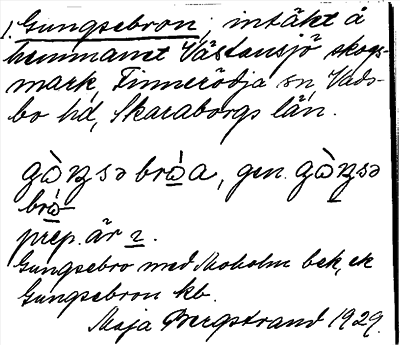 1. Gungsebron, intäkt å
hemmanet Västansjö skogs-
mark, Finnerödja sn, Vads-
bo hd, Skaraborgs län.
gò̀ŋsə brὼa, gen. gò̀ŋsə
brὼ-
prep. är 2.
Gungsebro med Moholm bek, ek
Gungsebron kb.
Maja Bergstrand 1929.